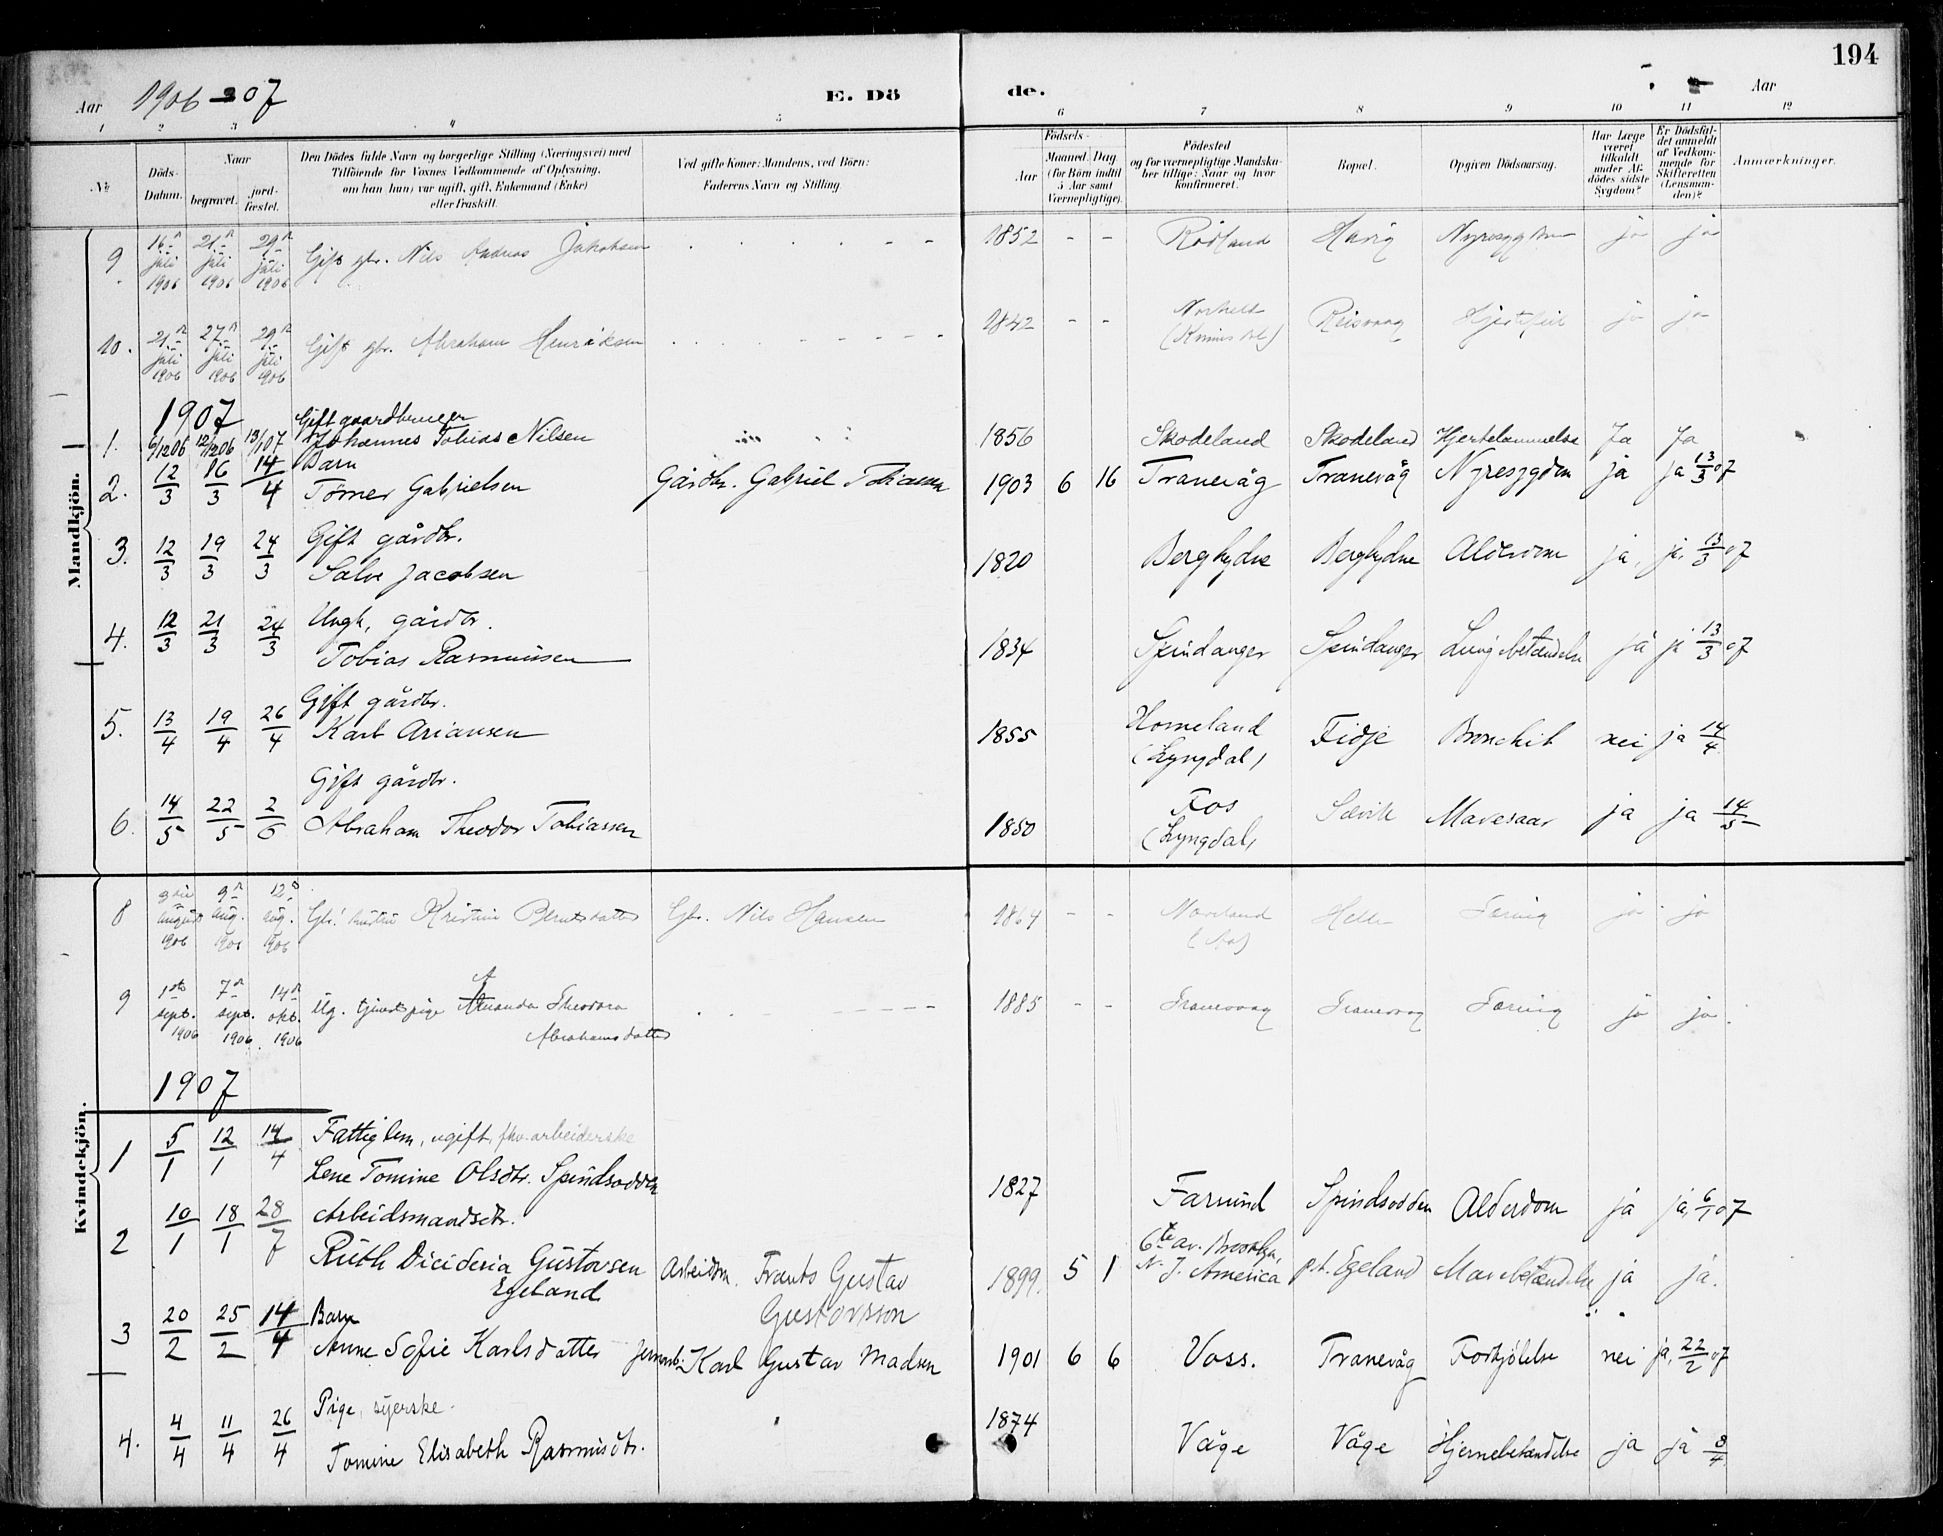 194
Aar 1906-07 E. Döde. Aar
1 2 3 4 5 6 7 8 9 10 11 12
№ Döds-Datum. Naar begravet. jord-fæstet. Den Dödes fulde Navn og borgerlige Stilling (Næringsvei) med Tilföiende for Voxnes Vedkommende af Oplysning, om han (hun) var ugift, gift, Enkemand (Enke) eller fraskilt. Ved gifte Koner: Mandens, ved Börn: Faderens Navn og Stilling. Födsels- Aar Maaned. Dag. (for Börn indtil 5 Aar samt Værnepligtige). Födested og for værnepligtige Mandskaber tillige: Naar og hvor konfirmeret. Bopæl. Opgiven Dödsaarsag. Har Læge været tilkaldt under Afdödes sidste Sygdom? Er Dödsfaldet anmeldt af Vedkommende for Skifteretten (Lensmanden)? Anmærkninger.
Mandkjön.
9 16de juli 1906 21de juli 1906 29de juli 1906 Gift gbr. Nils Andreas Jakobsen 1852 - - Rödland Havig Nyresygdom ja ja
10. 21de juli 1906 27de juli 1906 29de juli 1906 Gift gbr. Abraham Henriksen 1842 - - (Kvinesdal) Hjertefeil ja ja
1907 Gift gaardbruger
1. 6/12 06 12/12 06 13/1 07 Johannes Tobias Nilsen 1856 Skodeland Skodeland Hjertelammelse Ja Ja
Barn
2. 12/3 16/3 14/4 Tørner Gabrielsen Gårdbr. Gabriel Tobiassen 1903 6 16 Tranevåg Tranevåg Nyresygdom ja ja 13/3 07
Gift gårdbr.
3. 12/3 19/3 24/3 Salve Jacobsen 1820 Berghydne Berghydne Alderdom ja, ja, 13/3 07
Ungk, gårdbr.
4. 12/3 21/3 24/3 Tobias Rasmussen 1834 Spindanger Spindanger Lungebetændelse ja ja 13/3 07
Gift gårdbr.
5. 13/4 19/4 26/4 Karl Ariansen 1855 Horneland (Lyngdal) Fidje Bronchit nei ja 14/4
Gift gårdbr.
6. 14/5 22/5 2/6 Abraham Theodor Tobiassen 1850 Fos (Lyngdal) Sævik Mavesaar ja ja 14/5
Kvindekjön.
8 3die august 1906 9de aug. 1906 12te aug. 1906 Gbr. hustru Kristine Berntsdatter Gbr. Nils Hansen 1864 - - Helle Tæring ja ja
9 1ste sept. 1906 7de sept. 1906 14de okt. 1906 Ug. tjenestpige Amanda Theodora Abrahamsdatter 1885 - - Tranevaag Tranevaag Tæring ja ja.
1907
Fattiglem, ugift, fhv. arbeiderske
1 5/1 12/1 14/4 Lene Tomine Olsdtr. Spindsodden 1827 Farsund Spindsodden Alderdom ja ja, 6/1 07
Arbeidsmandsdtr.
2 10/1 18/1 28/7 Ruth Dicideria Gustovsen Egeland Arbeidsm. Frants Gustav Gustovsson 1899. 5 1 6te av. Brooklyn, N.J. America p.t. Egeland Mavebetændelse ja ja.
Barn
3 20/2 25/2 14/4 Anne Sofie Karlsdatter Jernarb: Karl Gustav Madsen 1901 6 6 Voss. Tranevåg Forkjølelse nei ja, 22/2 07
Pige, syerske.
4. 4/4 11/4 26/4 Tomine Elisabeth Rasmusdtr. 1874 Våge Våge Hjernebetændelse ja ja 8/4